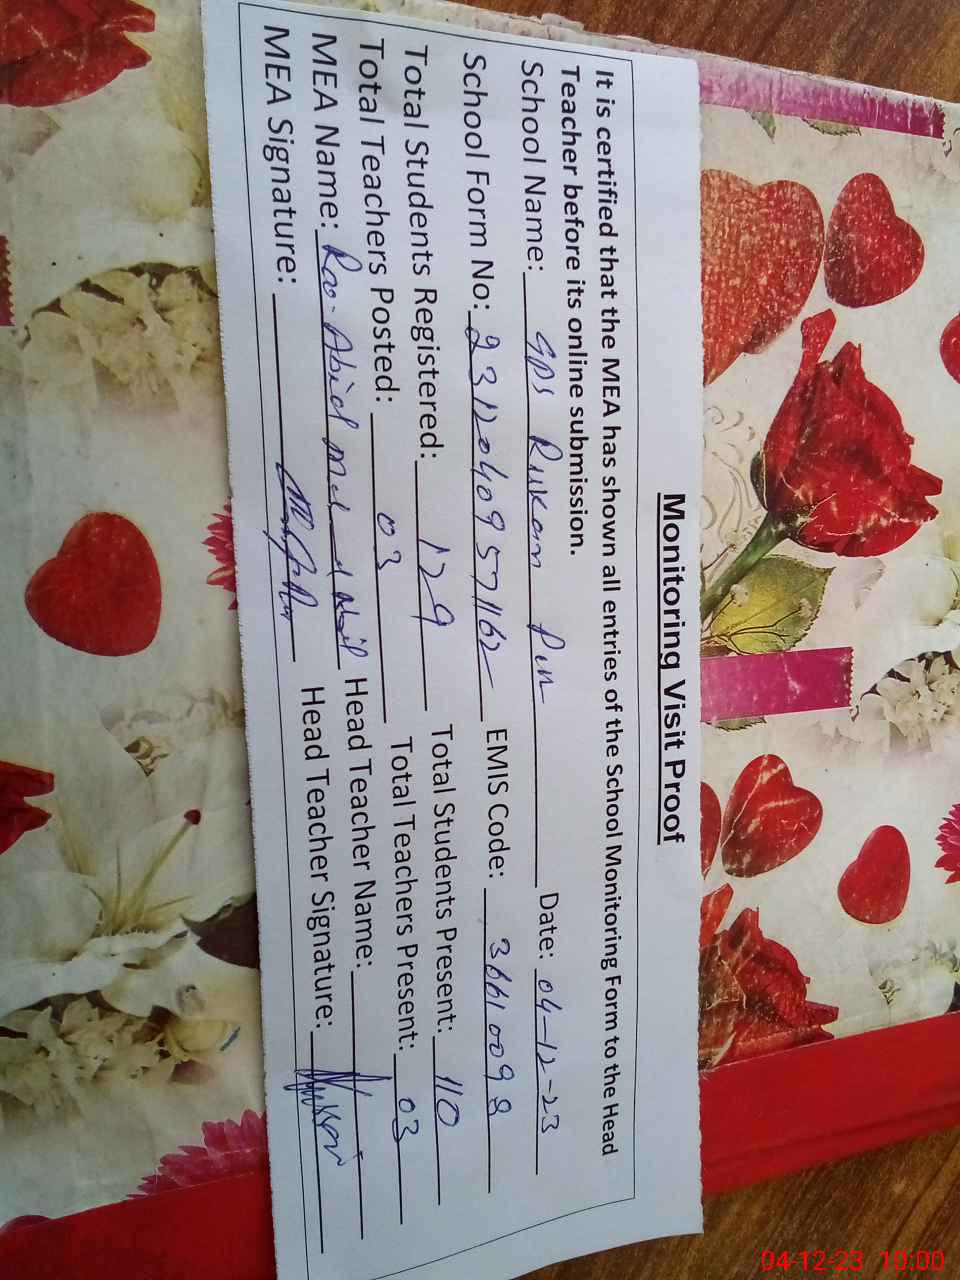 Monitoring Visit Proof
It is certified that the MEA has shown all entries of the School Monitoring Form to the Head
Teacher before its online submission.
School Name: GPS Rukan Din Date: 04-12-23
School Form No: 23120409571162 EMIS Code: 36610098
Total Students Registered: 129 Total Students Present: 110
Total Teachers Posted: 03 Total Teachers Present: 03
MEA Name: Rao Abid Head Teacher Name:
MEA Signature: Head Teacher Signature:
04-12-23 10:00